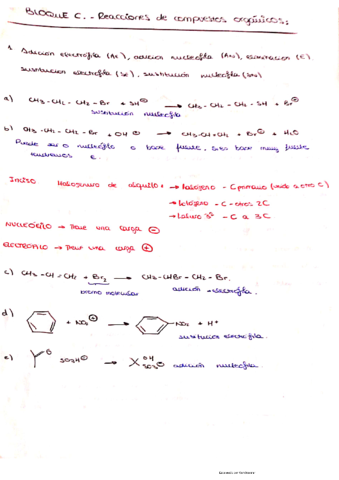 BLOQUE C.- Reacciones de compuestos orgánicos:
1. Adición electrófila (AE), adición nucleófila (AN), eliminación (E)
sustitución electrófila (SE), sustitución nucleófila (SN)
a) CH3-CH2-CH2-Br + SH⊖ → CH3-CH2-CH2-SH + Br⊖
sustitución nucleófila
b) CH3-CH2-CH2-Br + OH⊖ → CH3-CH=CH2 + Br⊖ + H2O
Puede ser o nucleófilo o base fuerte. Si es base muy fuerte
tendremos E.
Inciso Halogenuro de alquilo: → halógeno - C primario (unido a otro C)
→ halógeno - C - otros 2C
→ haluro 3º - C a 3C
NUCLEÓFILO → Tiene una carga ⊖
ELECTRÓFILO → Tiene una carga ⊕
c) CH3-CH=CH2 + Br2 → CH3-CHBr-CH2-Br.
bromo molecular adición electrófila.
d) + NO2⊕ → NO2 + H+
sustitución electrófila.
e) O SO3H⊖ → OH
SO3⊖ adición nucleófila